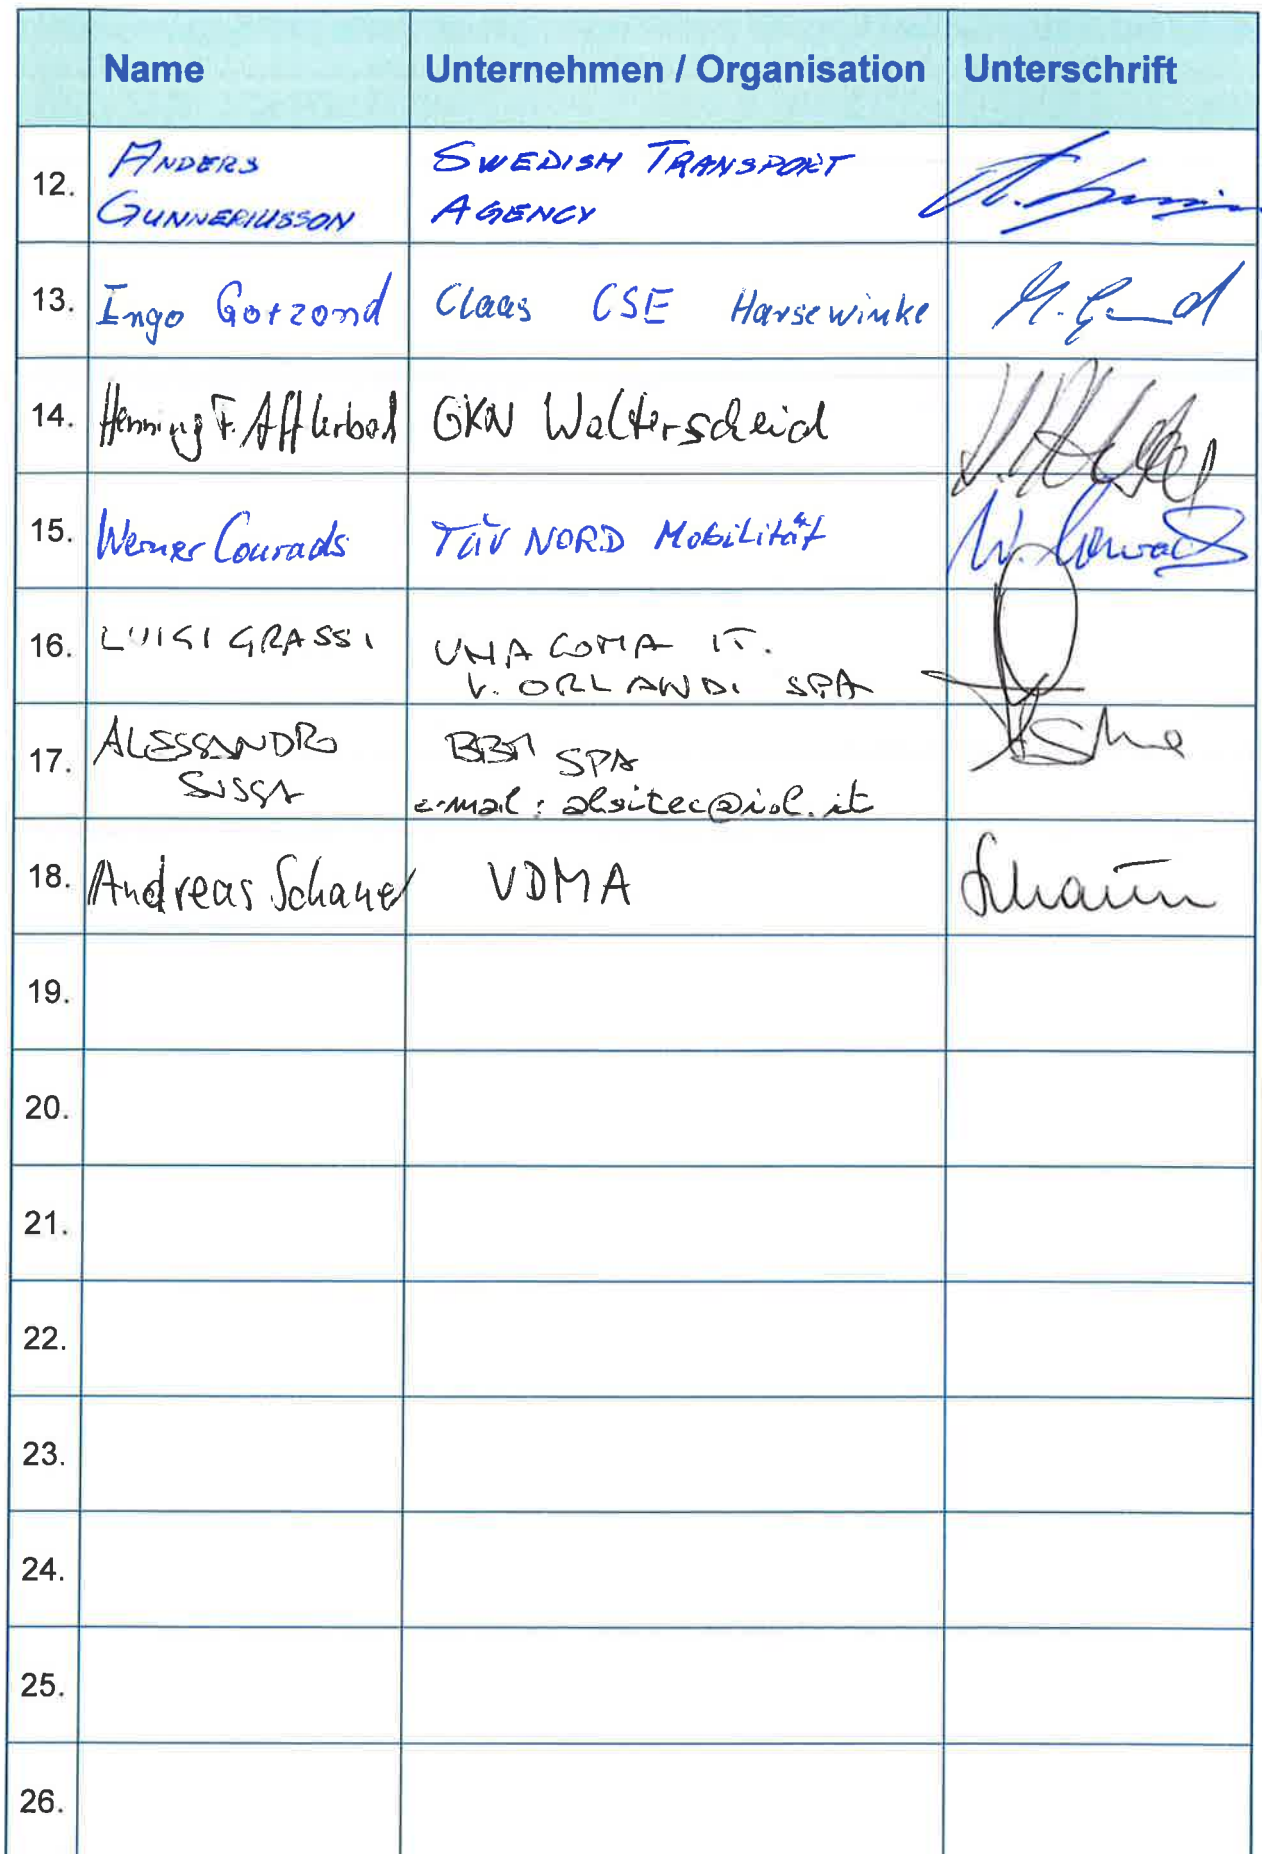 Name Unternehmen / Organisation Unterschrift
12. ANDERS GUNNERIUSSON SWEDISH TRANSPORT AGENCY
13. Ingo Gorzond Claas CSE Harsewinke
14. Henning F. Afflerbach GKN Walterscheid
15. Werner Conrads TÜV NORD Mobilität W. Conrads
16. LUIGI GRASSI UNACOMA IT.
V. ORLANDI SPA
17. ALESSANDRO SISSA BBM SPA
e-mail: alsitec@iol.it
18. Andreas Schauer VDMA
19.
20.
21.
22.
23.
24.
25.
26.